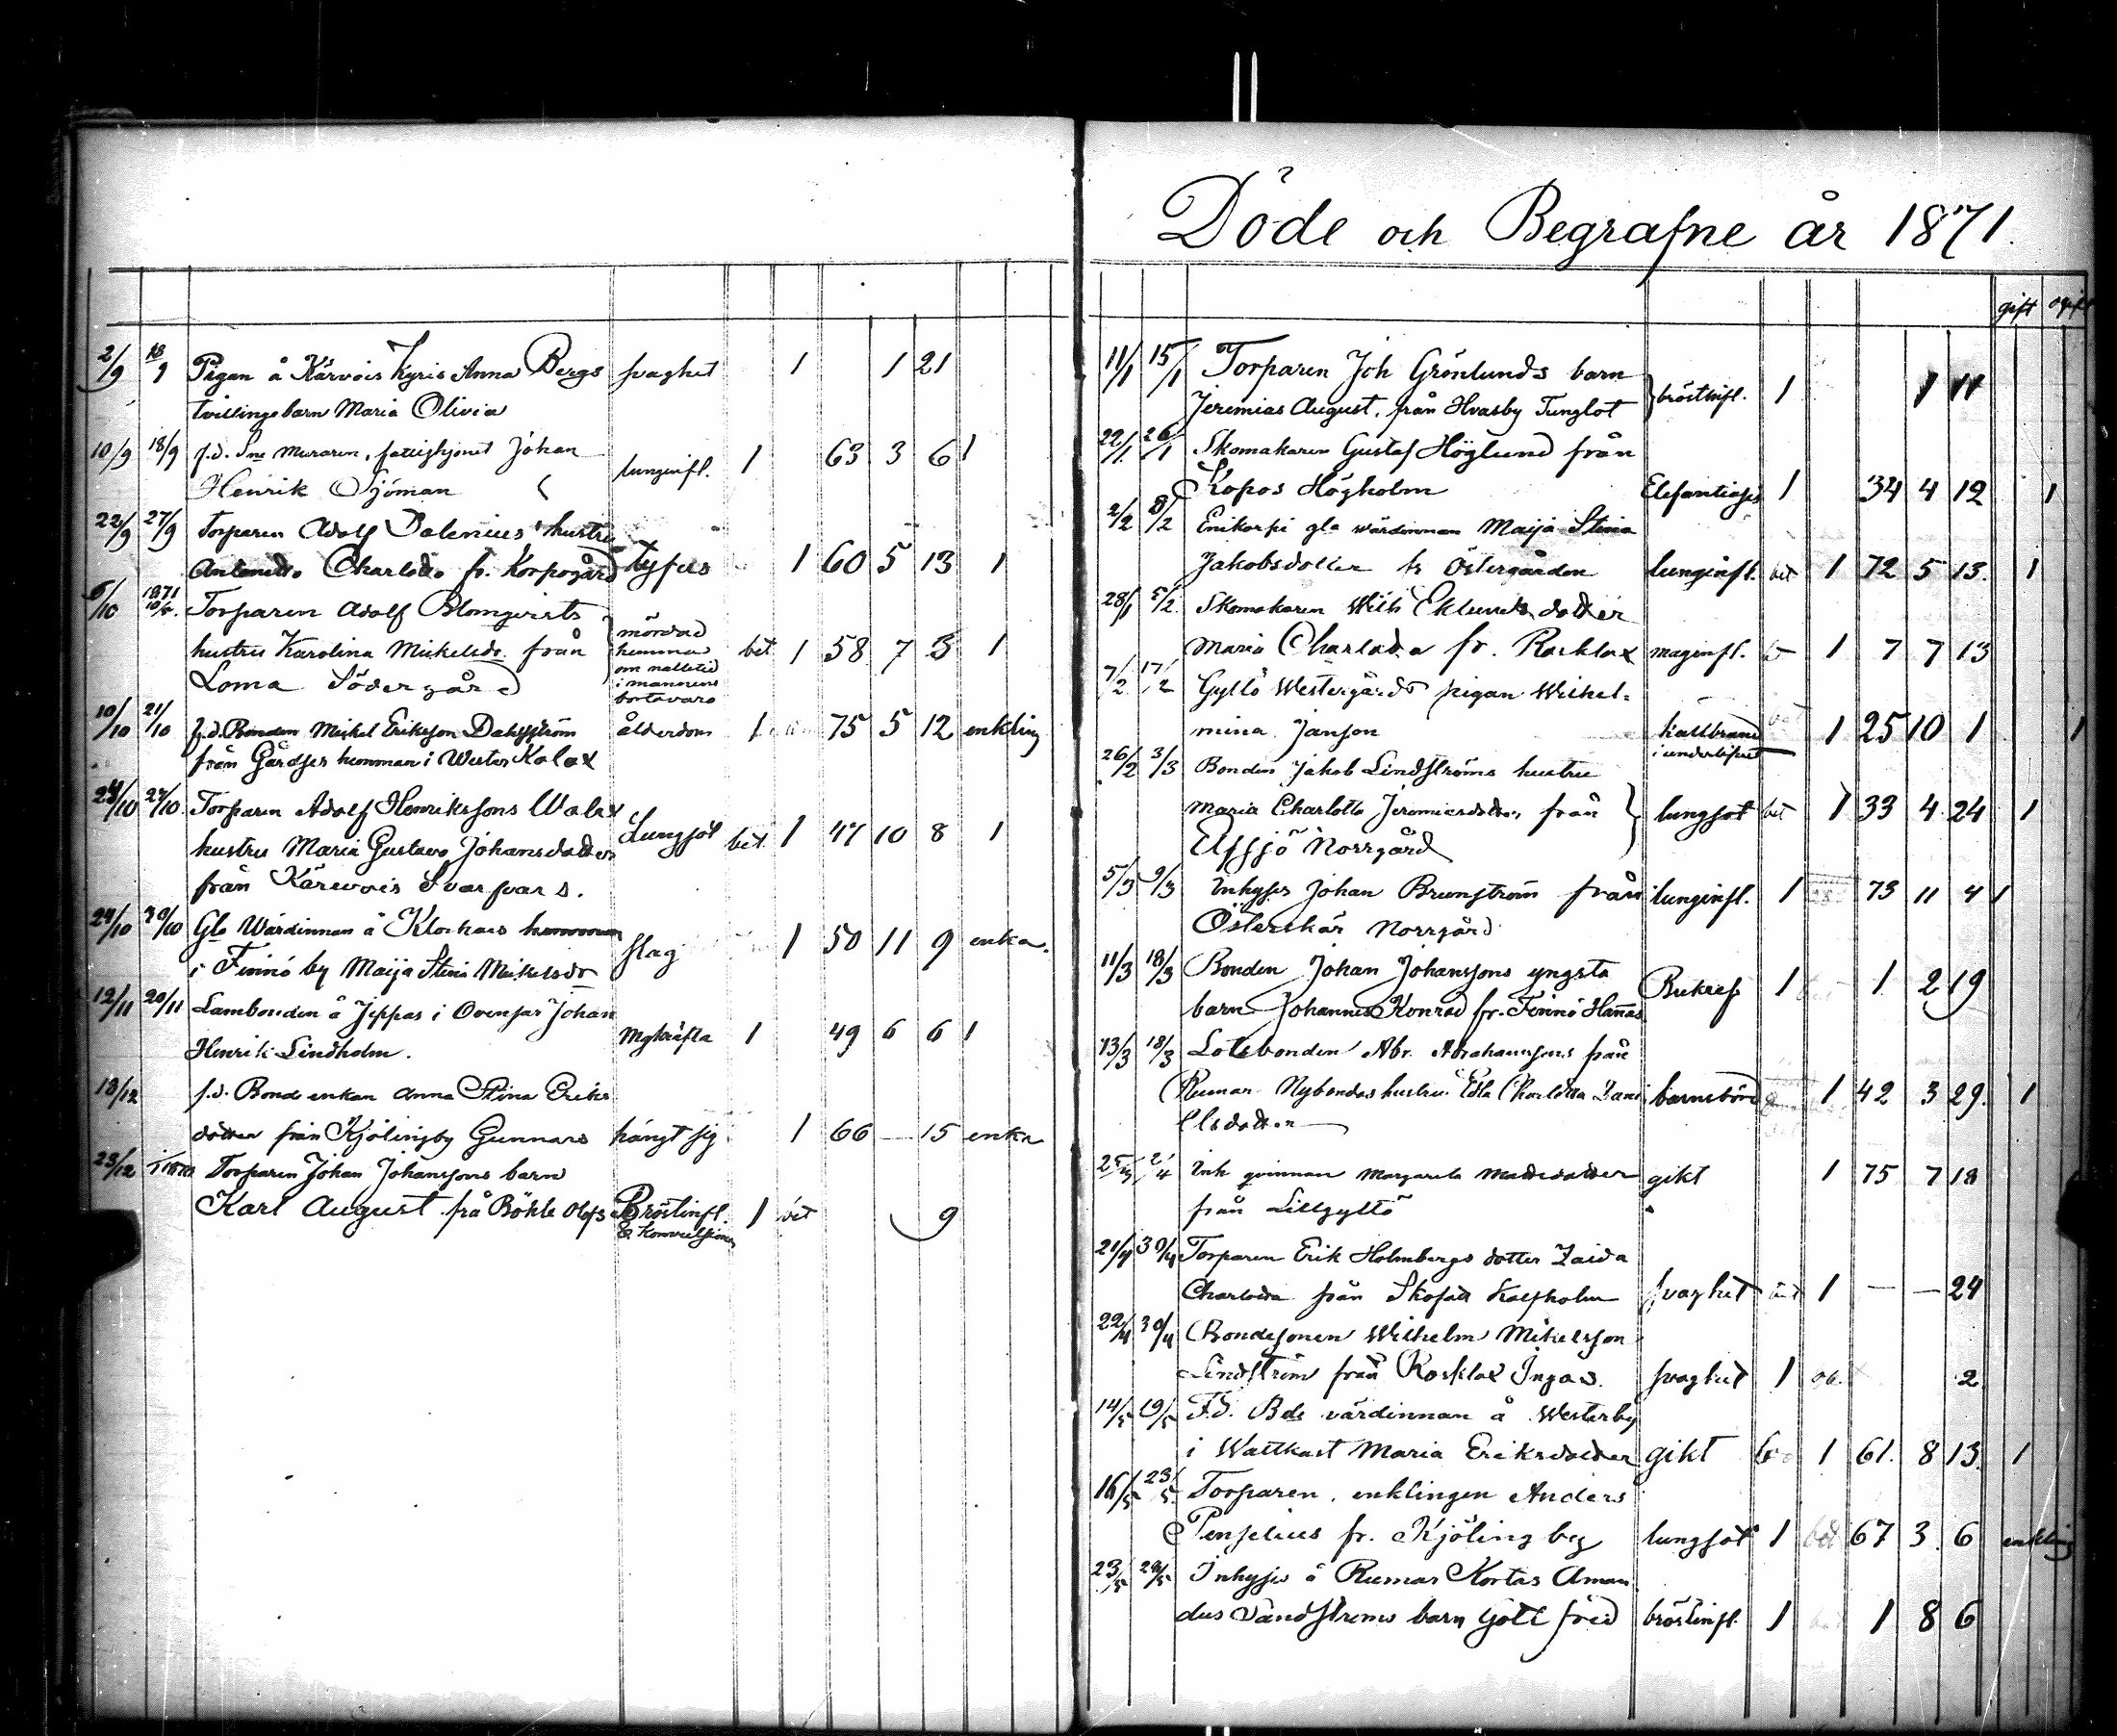 2/9 18/9 Pigan å Kärvois Kyris Anna Bergs svaghet 1 1 21
tvillingebarn Maria Olivia
10/9 18/9 f.d. Sne Muraren, fattighjonet Johan
Henrik Sjöman lunginfl. 1 63 3 6 1
22/9 27/9 Torparen Adolf Dalenius' hustru
Antonetta Charlotta fr. Korpogård tyfus 1 60 5 13 1
6/10 1871 Torparen Adolf Blomqvists
hustru Karolina Mickelsdr. från mördad hemma om nattetid i mannens bortavaro bet 1 58 7 3 1
Loma Södergård
10/10 21/10 f.d. Bonden Mickel Eriksson Dahlström ålderdom 1 75 5 12 enkling
från Gårdses hemman i Wester Kalax
24/10 27/10 Torparen Adolf Henrikssons Walax
hustru Maria Gustava Johansdotter Lungsot bet. 1 47 10 8 1
från Kärevois Svarsvars.
24/10 30/10 Gla Wärdinnan å Klockars hemman
i Finnö by Maija Stina Mickelsdr slag 1 50 11 9 enka.
12/11 20/11 Lambonden å Jeppas i Ovensar Johan
Henrik Lindholm. Mgkräfta 1 49 6 6 1
18/12 f.d. Bonde enkan Anna Stina Eriks
dotter från Kjölingby Gunnars hängt sig 1 66 — 15 enka
23/12 Torparen Johan Johanssons barn
Karl August frå Böhle Olofs Bröstinfl. & Konvulsioner 1 bet 9
Döde och Begrafne år 1871.
gift ogift
11/1 15/1 Torparen Joh Grönlunds barn
Jeremias August, från Hvasby Tunglot bröstinfl. 1 1 11
22/1 26/1 Skomakaren Gustaf Höglund från
Kopos Högholm Elefantiasis 1 34 4 12 1
2/2 8/2 Enikorpi gla wärdinnan Maija Stina
Jakobsdotter fr Östergården lunginfl. bet 1 72 5 13. 1
28/1 5/2 Skomakaren Wilh Eklunds dotter
Maria Charlotta fr. Rosklax maginfl. 1 7 7 13
7/2 17/2 Gyltö Westergårds pigan Wilhel-
mina Janson kallbrand i underlifvet 1 25 10 1 1
26/2 3/3 Bonden Jakob Lindströms hustru
Maria Charlotta Jeremiasdotter från lungsot bet 1 33 4 24 1
Afssjö Norrgård
5/3 9/3 Inhyses Johan Brunström från lunginfl. 1 73 11 4 1
Österskär Norrgård
11/3 18/3 Bonden Johan Johanssons yngsta
barn Johannes Konrad fr. Finnö Hannas Bukref 1 1 2 19
13/3 18/3 Lotsbonden Abr. Abrahamssons från
Rumar Nybondas hustru Edla Charlotta Dani barnsbörd 1 42 3 29. 1
elsdotter
25/3 2/4 Inh qvinnan Margareta Mattsdotter gikt 1 75 7 18
från Lillgyltö
21/4 30/4 Torparen Erik Holmbergs dotter Zaida
Charlotta från Skofall Kalfholm svaghet 1 — — 24
22/4 30/4 Bondesonen Wilhelm Mikelsson
Lindström från Rosklax Ingas. svaghet 1 2
14/5 19/5 F.d. Bde värdinnan å Westerby
i Wattkast Maria Eriksdotter gikt 1 61. 8 13. 1
16/5 23/5 Torparen, enklingen Anders
Penselius fr. Kjölingby lungsot 1 bet 67 3 6 enkling
23/5 29/5 Inhyses å Rumar Kortas Aman
dus Sandströms barn Gott fried bröstinfl. 1 1 8 6